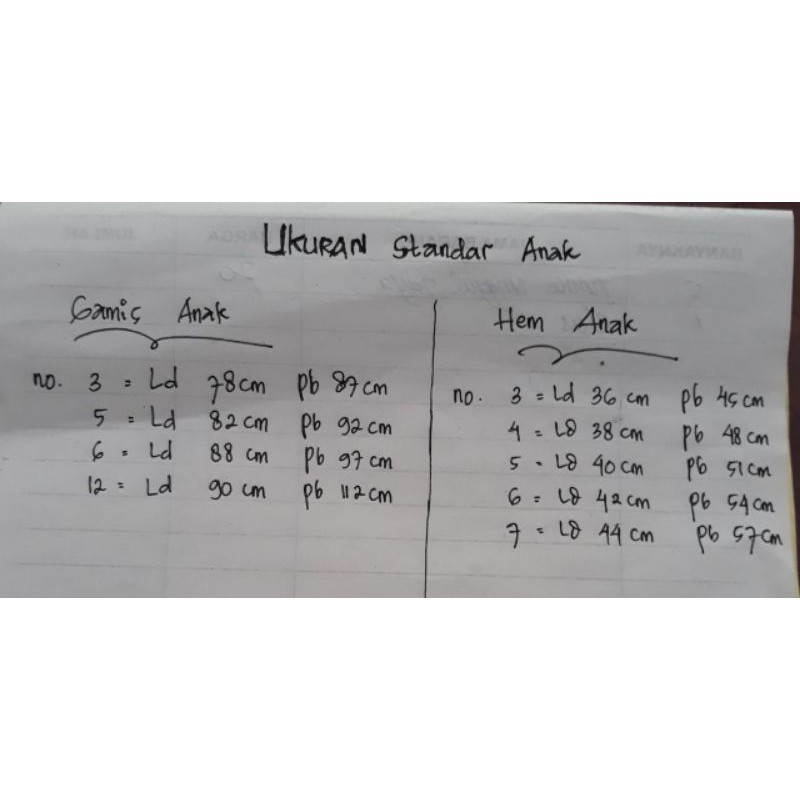 UKURAN Standar Anak
Gamis Anak
no. 3 = Ld 78 cm pb 87 cm
5 = Ld 82 cm pb 92 cm
6 = Ld 88 cm pb 97 cm
12 = Ld 90 cm pb 112 cm
Hem Anak
no. 3 = Ld 36 cm pb 45 cm
4 = Ld 38 cm pb 48 cm
5 = Ld 40 cm pb 51 cm
6 = Ld 42 cm pb 54 cm
7 = Ld 44 cm pb 57 cm